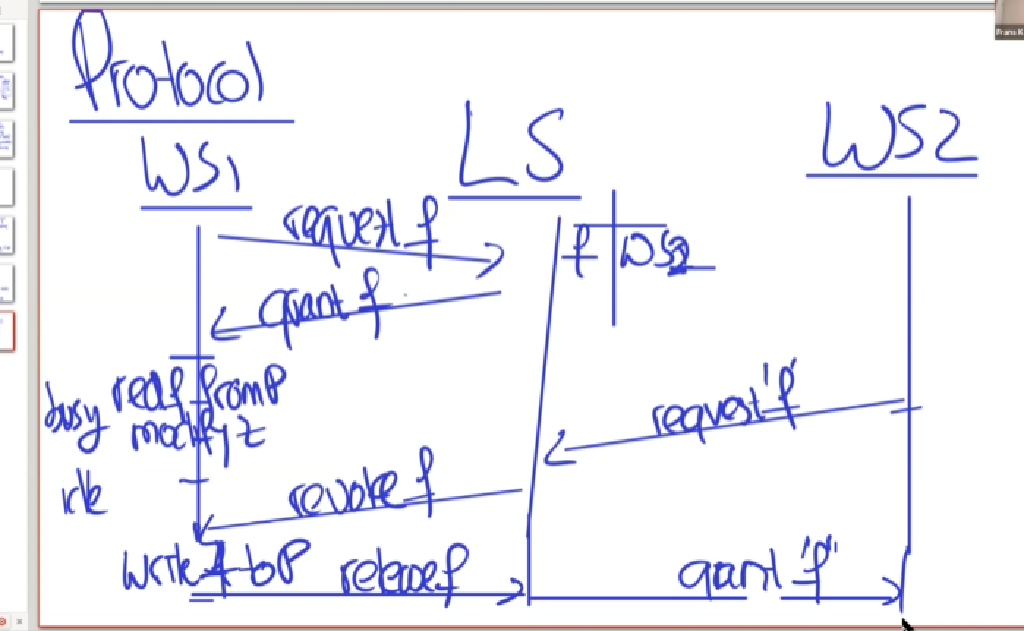 Protocol
WS1 LS WS2
request f
f WS2
grant f
busy read f from P
modify z
request "f"
idle
revoke f
write f to P release f grant "f"
Frans K